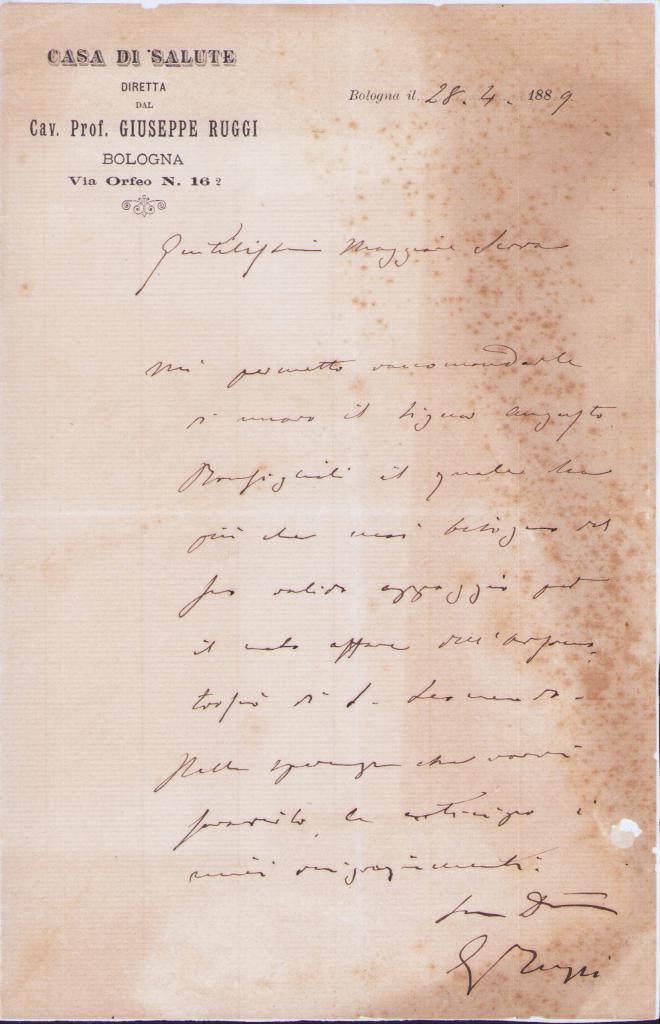 CASA DI SALUTE
DIRETTA
DAL
Cav. Prof. GIUSEPPE RUGGI
BOLOGNA
Via Orfeo N. 16 2
Bologna il 28. 4. 1889
Gentilissimo Maggiore Serra
Mi permetto raccomandarle
di nuovo il Signor Augusto
Bonfiglioli il quale ha
più che mai bisogno del
suo valido appoggio per
il noto affare dell'Orfano-
trofio di S. Leonardo.
Nella speranza che vorrà
favorirlo, le anticipo i
miei ringraziamenti.
Suo
G Ruggi